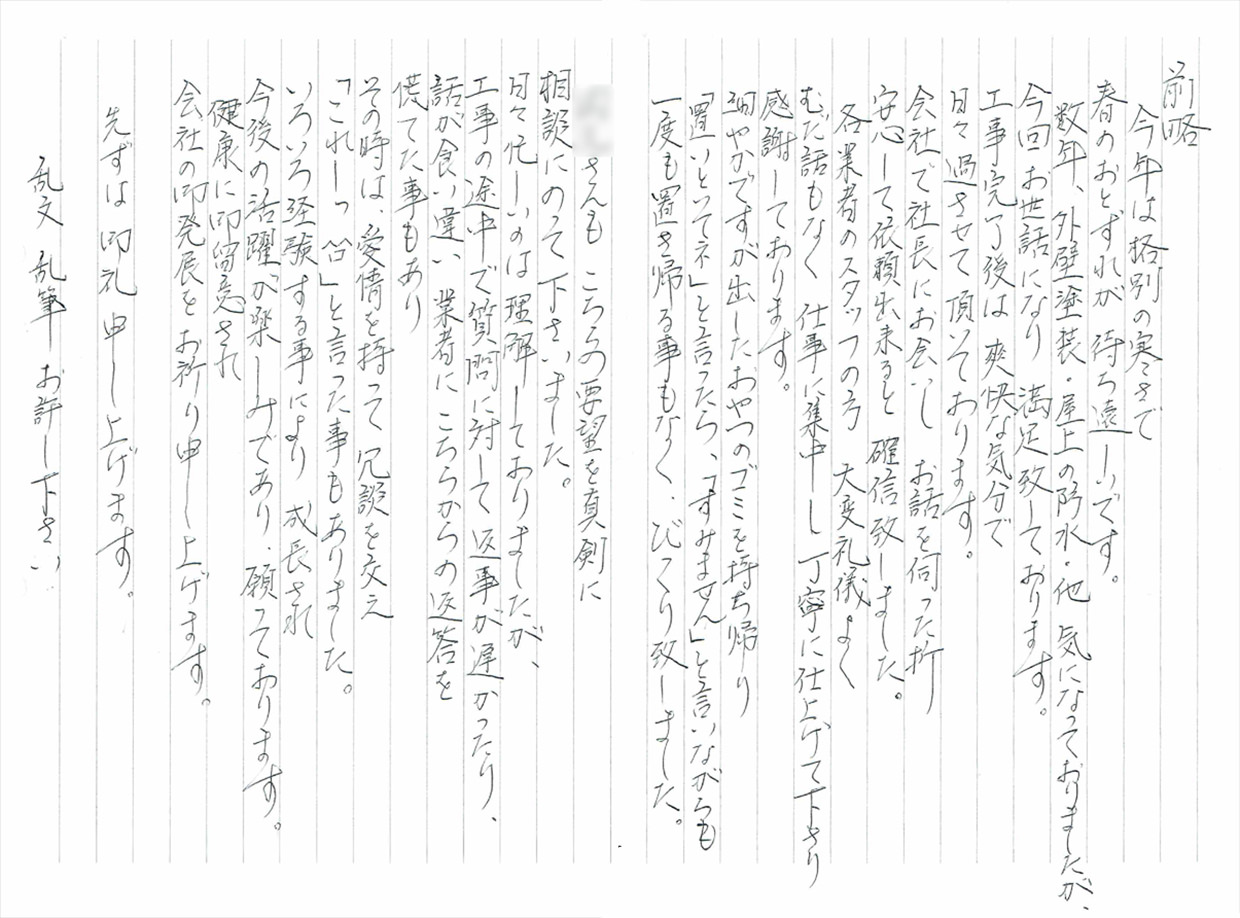 前略
今年は格別の寒さで
春のおとずれが 待ち遠しいです。
数年、外壁塗装・屋上の防水・他 気になっておりましたが、
今回 お世話になり 満足致しております。
工事完了後は 爽快な気分で
日々 過させて 頂いております。
会社で社長にお会いし お話を伺った折
安心して依頼出来ると 確信致しました。
各業者のスタッフの方 大変礼儀よく
むだ話もなく 仕事に集中し 丁寧に仕上げて下さり
感謝しております。
細やかですが出したおやつのゴミを持ち帰り
「置いといてネ」と言ったら、「すみません」と言いながらも
一度も置き帰る事もなく、びっくり致しました。
さんも こちらの要望を真剣に
相談にのって 下さいました。
日々 忙しいのは 理解しておりましたが、
工事の途中で質問に対して 返事が遅かったり、
話が食い違い 業者に こちらからの返答を
慌てた事もあり
その時は、愛情を持って 冗談を交え
「これーっ 笞」と言った事もありました。
いろいろ経験する事により 成長され
今後の活躍が楽しみであり、願っております。
健康に御留意され
会社の御発展を お祈り申し上げます。
先ずは 御礼 申し上げます。
乱文 乱筆 お許し下さい